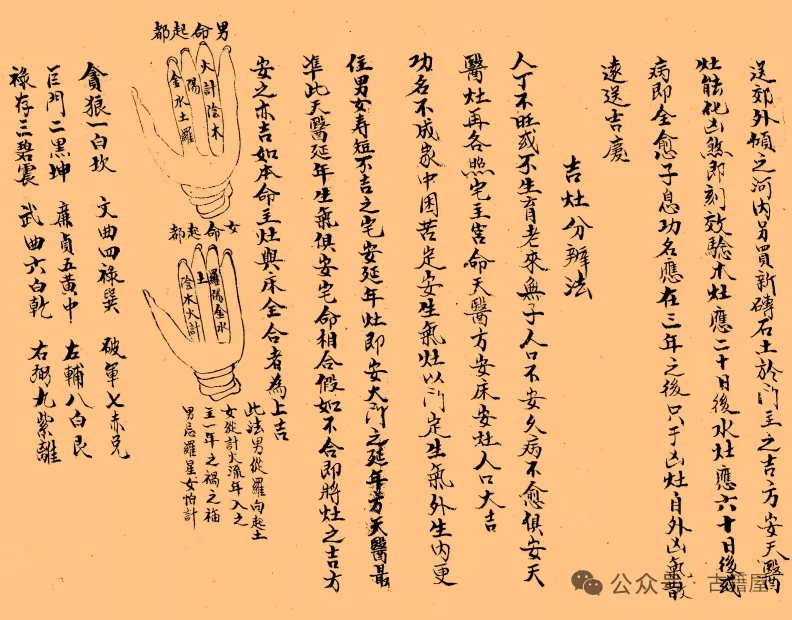 送郊外傾之河內另買新磚石土於門主之吉方安天醫
灶能化凶煞即刻效驗木灶應二十日後水灶應六十日後或
病即全愈子息功名應在三年之後只于凶灶自外凶氣散
遠送吉慶
吉灶分辨法
人丁不旺或不生育老來無子人口不安久病不愈俱安天
醫灶再各照宅主宮命天醫方安床安灶人口大吉
功名不成家中困苦定安生氣灶以門定生氣外生內更
住男女寿短不吉之宅安延年灶即安大門之延年方天醫最
準此天醫延年生氣俱安宅命相合假如不合即將灶之吉方
安之亦吉如本命主灶與床全合者為上吉
男命起都
火計陰木
陽
金水土羅
女命起都
羅陽金水
土
陰木火計
此法男從羅向起土
女從計火流年入之
主一年之禍之福
男忌羅星女怕計
貪狼一白坎 文曲四祿巽 破軍七赤兌
巨門二黑坤 廉貞五黃中 左輔八白艮
祿存三碧震 武曲六白乾 右弼九紫離
公众号 古籍屋